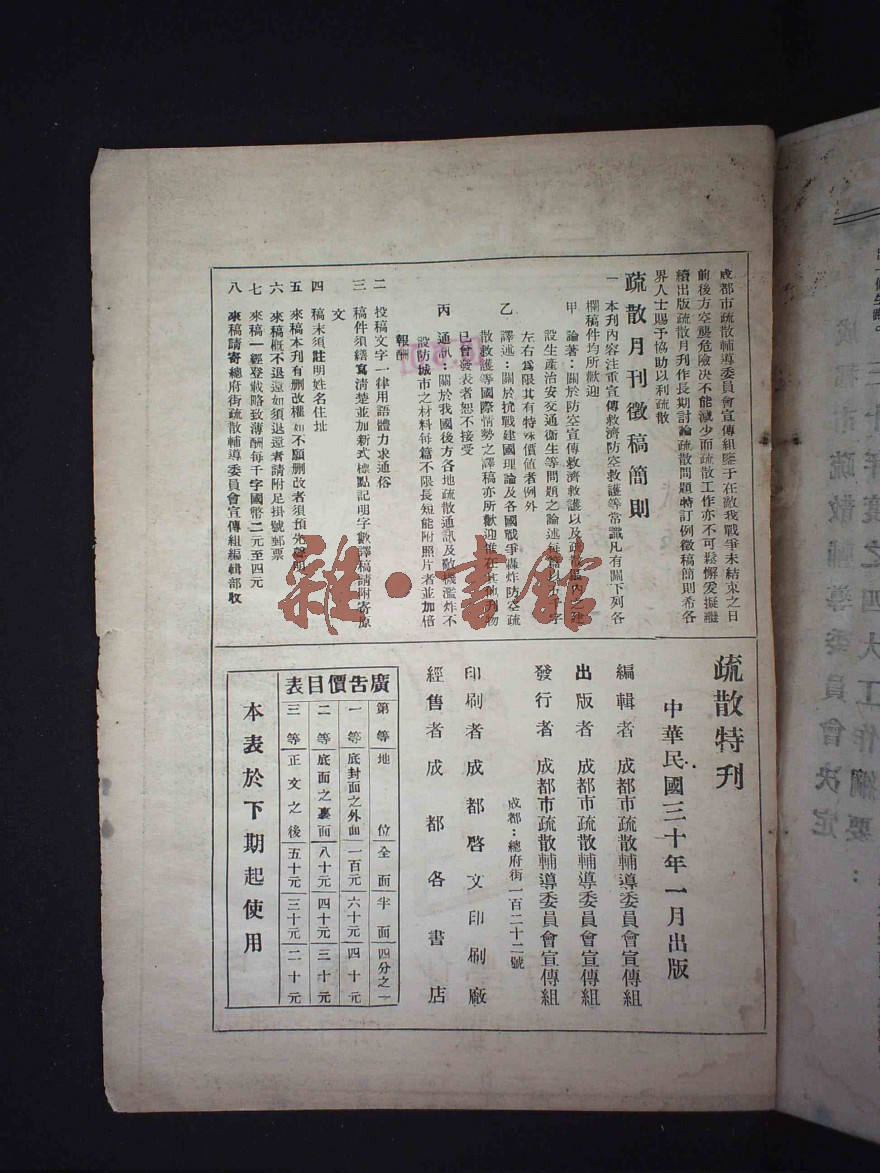 成都市疏散輔導委員會宣傳組鑒于在敵我戰爭未結束之日
前後方空襲危險決不能減少而疏散工作亦不可鬆懈爰擬繼
續出版疏散月刊作長期討論疏散問題特訂例徵稿簡則希各
界人士賜予協助以利疏散
疏散月刊徵稿簡則
一 本刊內容注重宣傳救濟防空救護等常識凡有關下列各
欄稿件均所歡迎
甲 論著:關於防空宣傳救濟救護以及疏散區內之建
設生產治安交通衛生等問題之論述每篇以五千字
左右爲限其有特殊價値者例外
乙 譯述:關於抗戰建國理論及各國戰爭轟炸防空疏
散救護等國際情勢之譯稿亦所歡迎惟在其他刊物
已曾發表者恕不接受
丙 通訊:關於我國後方各地疏散通訊及敵機濫炸不
設防城市之材料每篇不限長短能附照片者並加倍
報酬
二 投稿文字一律用語體力求通俗
三 稿件須繕寫清楚並加新式標點記明字數譯稿請附寄原
文
四 稿末須註明姓名住址
五 來稿本刊有删改權如不願删改者須預先聲明
六 來稿概不退還如須退還者請附足掛號郵票
七 來稿一經登載略致薄酬每千字國幣二元至四元
八 來稿請寄總府街疏散輔導委員會宣傳組編輯部收
疏散特刋
中華民國三十年一月出版
編輯者 成都市疏散輔導委員會宣傳組
出版者 成都市疏散輔導委員會宣傳組
發行者 成都市疏散輔導委員會宣傳組
成都:總府街一百二十二號
印刷者 成都啓文印刷廠
經售者 成都各書店
廣告價目表
第等 地位 全面 半面 四分之一
一等 底封面之外面 一百元 六十元 四十元
二等 底面之裏面 八十元 四十元 三十元
三等 正文之後 五十元 三十元 二十元
本表於下期起使用
雜·書館
成都市疏散輔導委員會決定
三十年度之四大工作綱要: